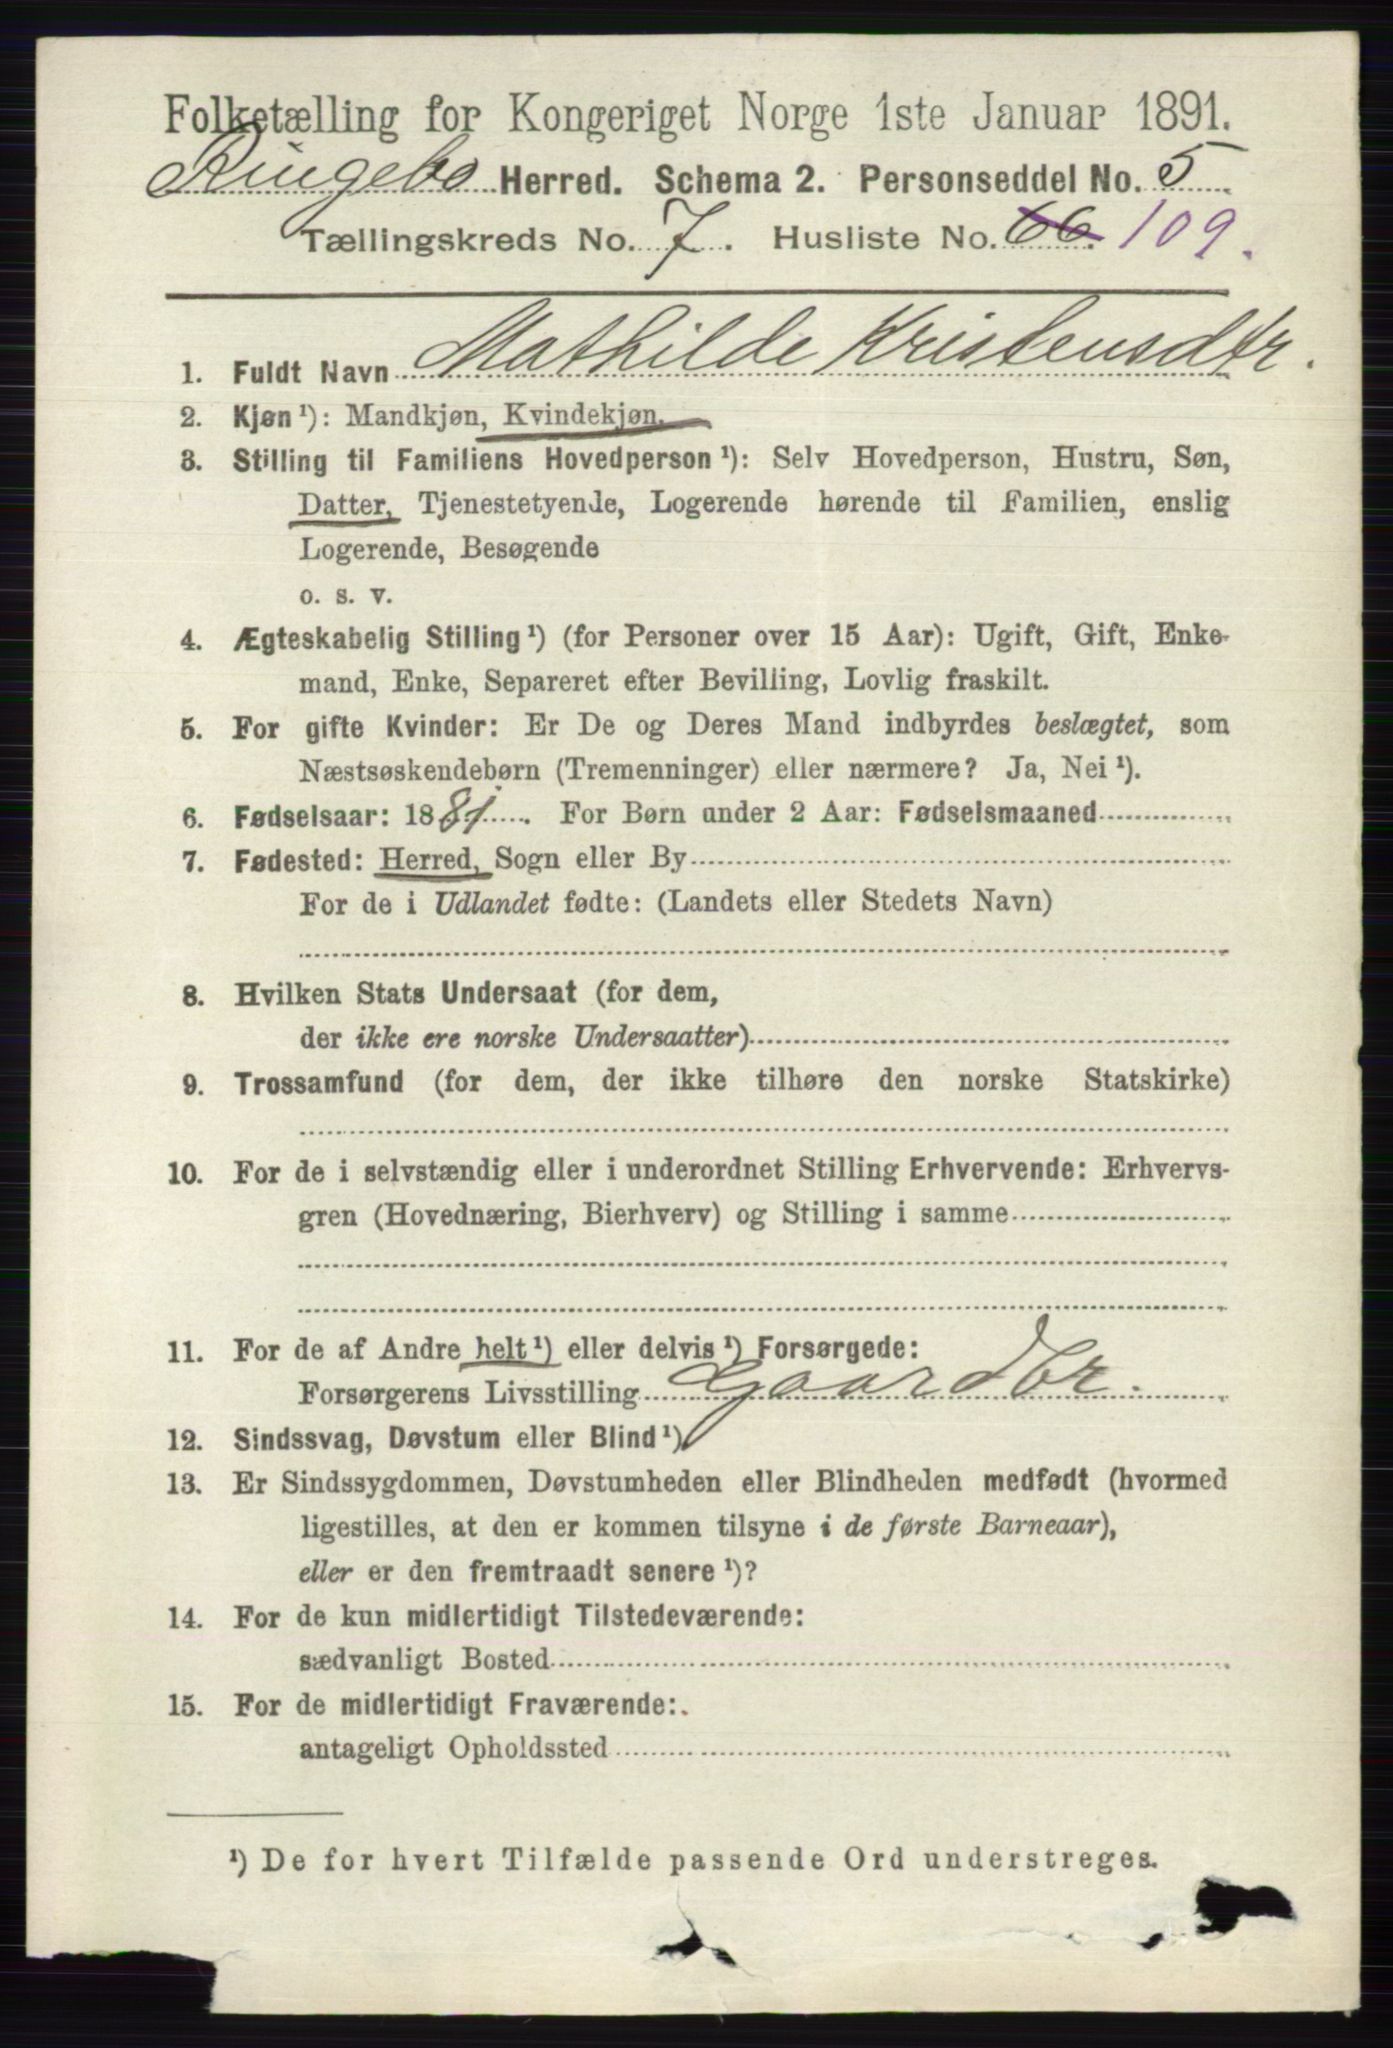 Folketælling for Kongeriget Norge 1ste Januar 1891.
Ringebo Herred. Schema 2. Personseddel No. 5
Tællingskreds No. 7. Husliste No. 66. 109.
1. Fuldt Navn Mathilde Kristensdtr.
2. Kjøn¹): Mandkjøn, Kvindekjøn.
3. Stilling til Familiens Hovedperson¹): Selv Hovedperson, Hustru, Søn,
Datter, Tjenestetyende, Logerende hørende til Familien, enslig
Logerende, Besøgende
o. s. v.
4. Ægteskabelig Stilling¹) (for Personer over 15 Aar): Ugift, Gift, Enke-
mand, Enke, Separeret efter Bevilling, Lovlig fraskilt.
5. For gifte Kvinder: Er De og Deres Mand indbyrdes beslægtet, som
Næstsøskendebørn (Tremenninger) eller nærmere? Ja, Nei¹).
6. Fødselsaar: 1881. For Børn under 2 Aar: Fødselsmaaned
7. Fødested: Herred, Sogn eller By
For de i Udlandet fødte: (Landets eller Stedets Navn)
8. Hvilken Stats Undersaat (for dem,
der ikke ere norske Undersaatter)
9. Trossamfund (for dem, der ikke tilhøre den norske Statskirke)
10. For de i selvstændig eller i underordnet Stilling Erhvervende: Erhvervs-
gren (Hovednæring, Bierhverv) og Stilling i samme
11. For de af Andre helt¹) eller delvis¹) Forsørgede:
Forsørgerens Livsstilling
12. Sindssvag, Døvstum eller Blind¹)
13. Er Sindssygdommen, Døvstumheden eller Blindheden medfødt (hvormed
ligestilles, at den er kommen tilsyne i de første Barneaar),
eller er den fremtraadt senere¹)?
14. For de kun midlertidigt Tilstedeværende:
sædvanligt Bosted
15. For de midlertidigt Fraværende:
antageligt Opholdssted
¹) De for hvert Tilfælde passende Ord understreges.